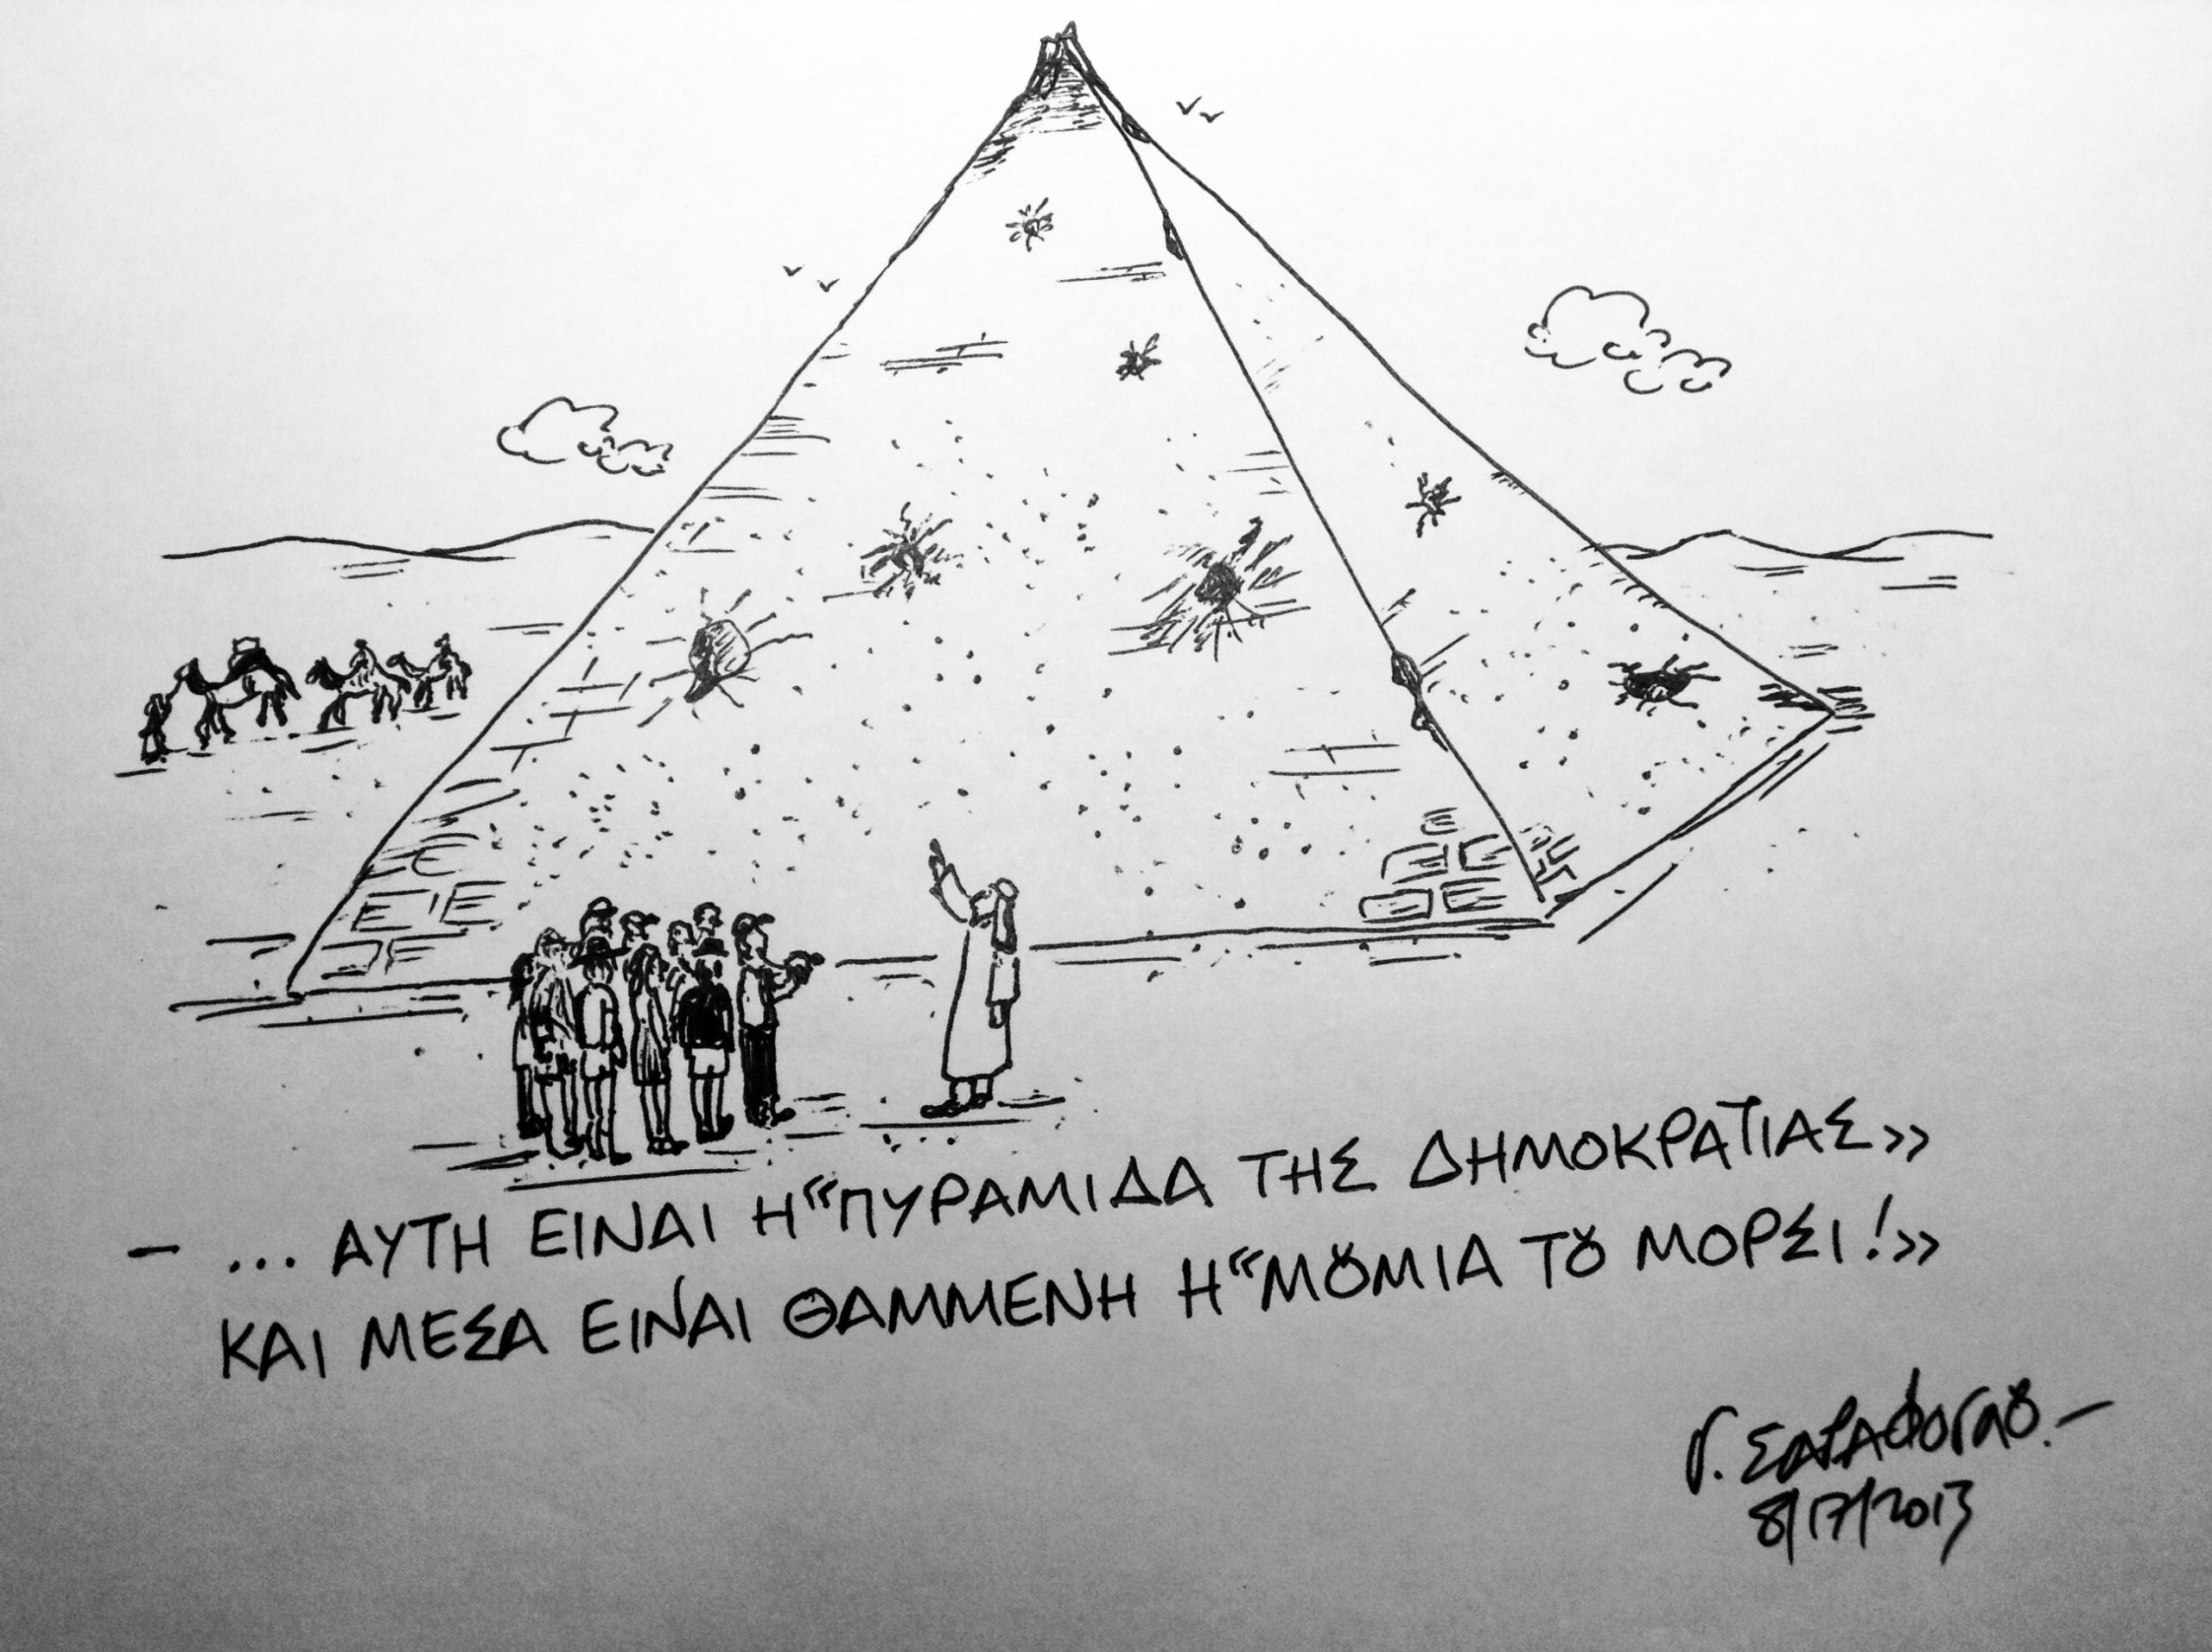 – ... ΑΥΤΗ ΕΙΝΑΙ Η "ΠΥΡΑΜΙΔΑ ΤΗΣ ΔΗΜΟΚΡΑΤΙΑΣ»
ΚΑΙ ΜΕΣΑ ΕΙΝΑΙ ΘΑΜΜΕΝΗ Η "ΜȢΜΙΑ ΤȢ ΜΟΡΣΙ!»
8/17/2013